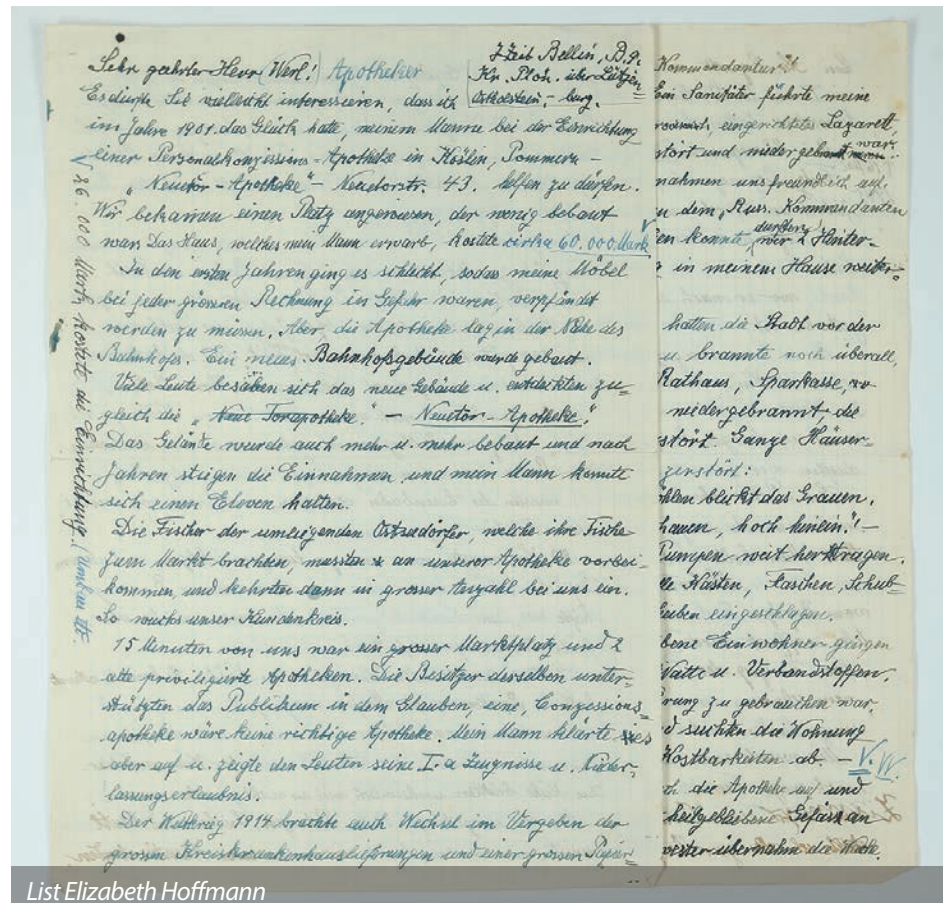 Sehr geehrter Herr Werl! Apotheker
z Zeit Bellin, B.g.
Kr. Plön. über Lütjen=
Ostholstein,- burg.
Es dürfte Sie vielleicht interessieren, dass ich
im Jahre 1901 das Glück hatte, meinem Manne bei der Einrichtung
einer Personalkonzessions-Apotheke in Köslin, Pommern -
"Neuetor-Apotheke"- Neuetorstr. 43. helfen zu dürfen.
Wir bekamen einen Platz angewiesen, der wenig bebaut
war. Das Haus, welches mein Mann erwarb, kostete cirka 60.000 Mark
In den ersten Jahren ging es schlecht, sodass meine Möbel
bei jeder grösseren Rechnung in Gefahr waren, verpfändet
werden zu müssen. Aber die Apotheke lag in der Nähe des
Bahnhofs. Ein neues Bahnhofsgebäude wurde gebaut.
Viele Leute besahen sich das neue Gebäude u. entdeckten zu=
gleich die "Neue Torapotheke" - Neuetor-Apotheke."
Das Gelände wurde auch mehr u. mehr bebaut und nach
Jahren stiegen die Einnahmen und mein Mann konnte
sich einen Eleven halten.
Die Fischer der umliegenden Ostseedörfer, welche ihre Fische
zum Markt brachten, mussten an unserer Apotheke vorbei-
kommen, und kehrten dann in grosser Anzahl bei uns ein.
So wuchs unser Kundenkreis.
15 Minuten von uns war ein grosser Marktplatz und 2
alte priviligierte Apotheken. Die Besitzer derselben unter=
stützten das Publikum in dem Glauben, eine, Conzessions=
apotheke wäre keine richtige Apotheke. Mein Mann klärte es
aber auf u. zeigte den Leuten seine I. a Zeugnisse u. Nieder-
lassungserlaubnis.
Der Weltkrieg 1914 brachte auch Wechsel im Vergeben der
grossen Kreiskrankenhauslieferungen und einer grossen Papier-
26.000 Mark kostete die Einrichtung. (Umbau
Kommandantur
Ein Sanitäter führte meine
eingerichtetes Lazarett,
stört und niedergebrannt war.
nahmen uns freundlich auf.
dem Russ. Kommandanten
en konnte, durften wir 2 Hinter-
in meinem Hause weiter=
hatten die Stadt vor der
u. brannte noch überall,
Rathaus, Sparkasse,
niedergebrannt die
stört Ganze Häuser-
zerstört:
hlen blickt das Grauen,
hauen, hoch hinein."!-
Pumpen weit her tragen.
Kästen, Flaschen, Schub-
eiben eingeschlagen.
bene Einwohner gingen
Watte u. Verbandstoffen,
rung zu gebrauchen war.
d suchten die Wohnung
Kostbarkeiten ab. - V. W.
die Apotheke auf und
heilgebliebene Gefäss an
wester übernahm die Wache.
List Elizabeth Hoffmann